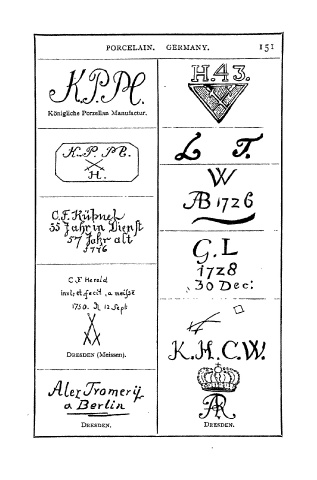 PORCELAIN. GERMANY. 151
K.P.M.
Königliche Porzellan Manufactur.
K. P. M.
H.
C.F. Kühnel
35 Jahr in Dienst
57 Jahr alt
1776
C F Herold
invt. et. fecit. a meisse
1750. d. 12 Sept
DRESDEN (Meissen).
Alex Tromery
a Berlin
DRESDEN.
H.43.
L T.
W
AB 1726
G. L
1728
30 Dec:
K.H.C.W.
AR
DRESDEN.